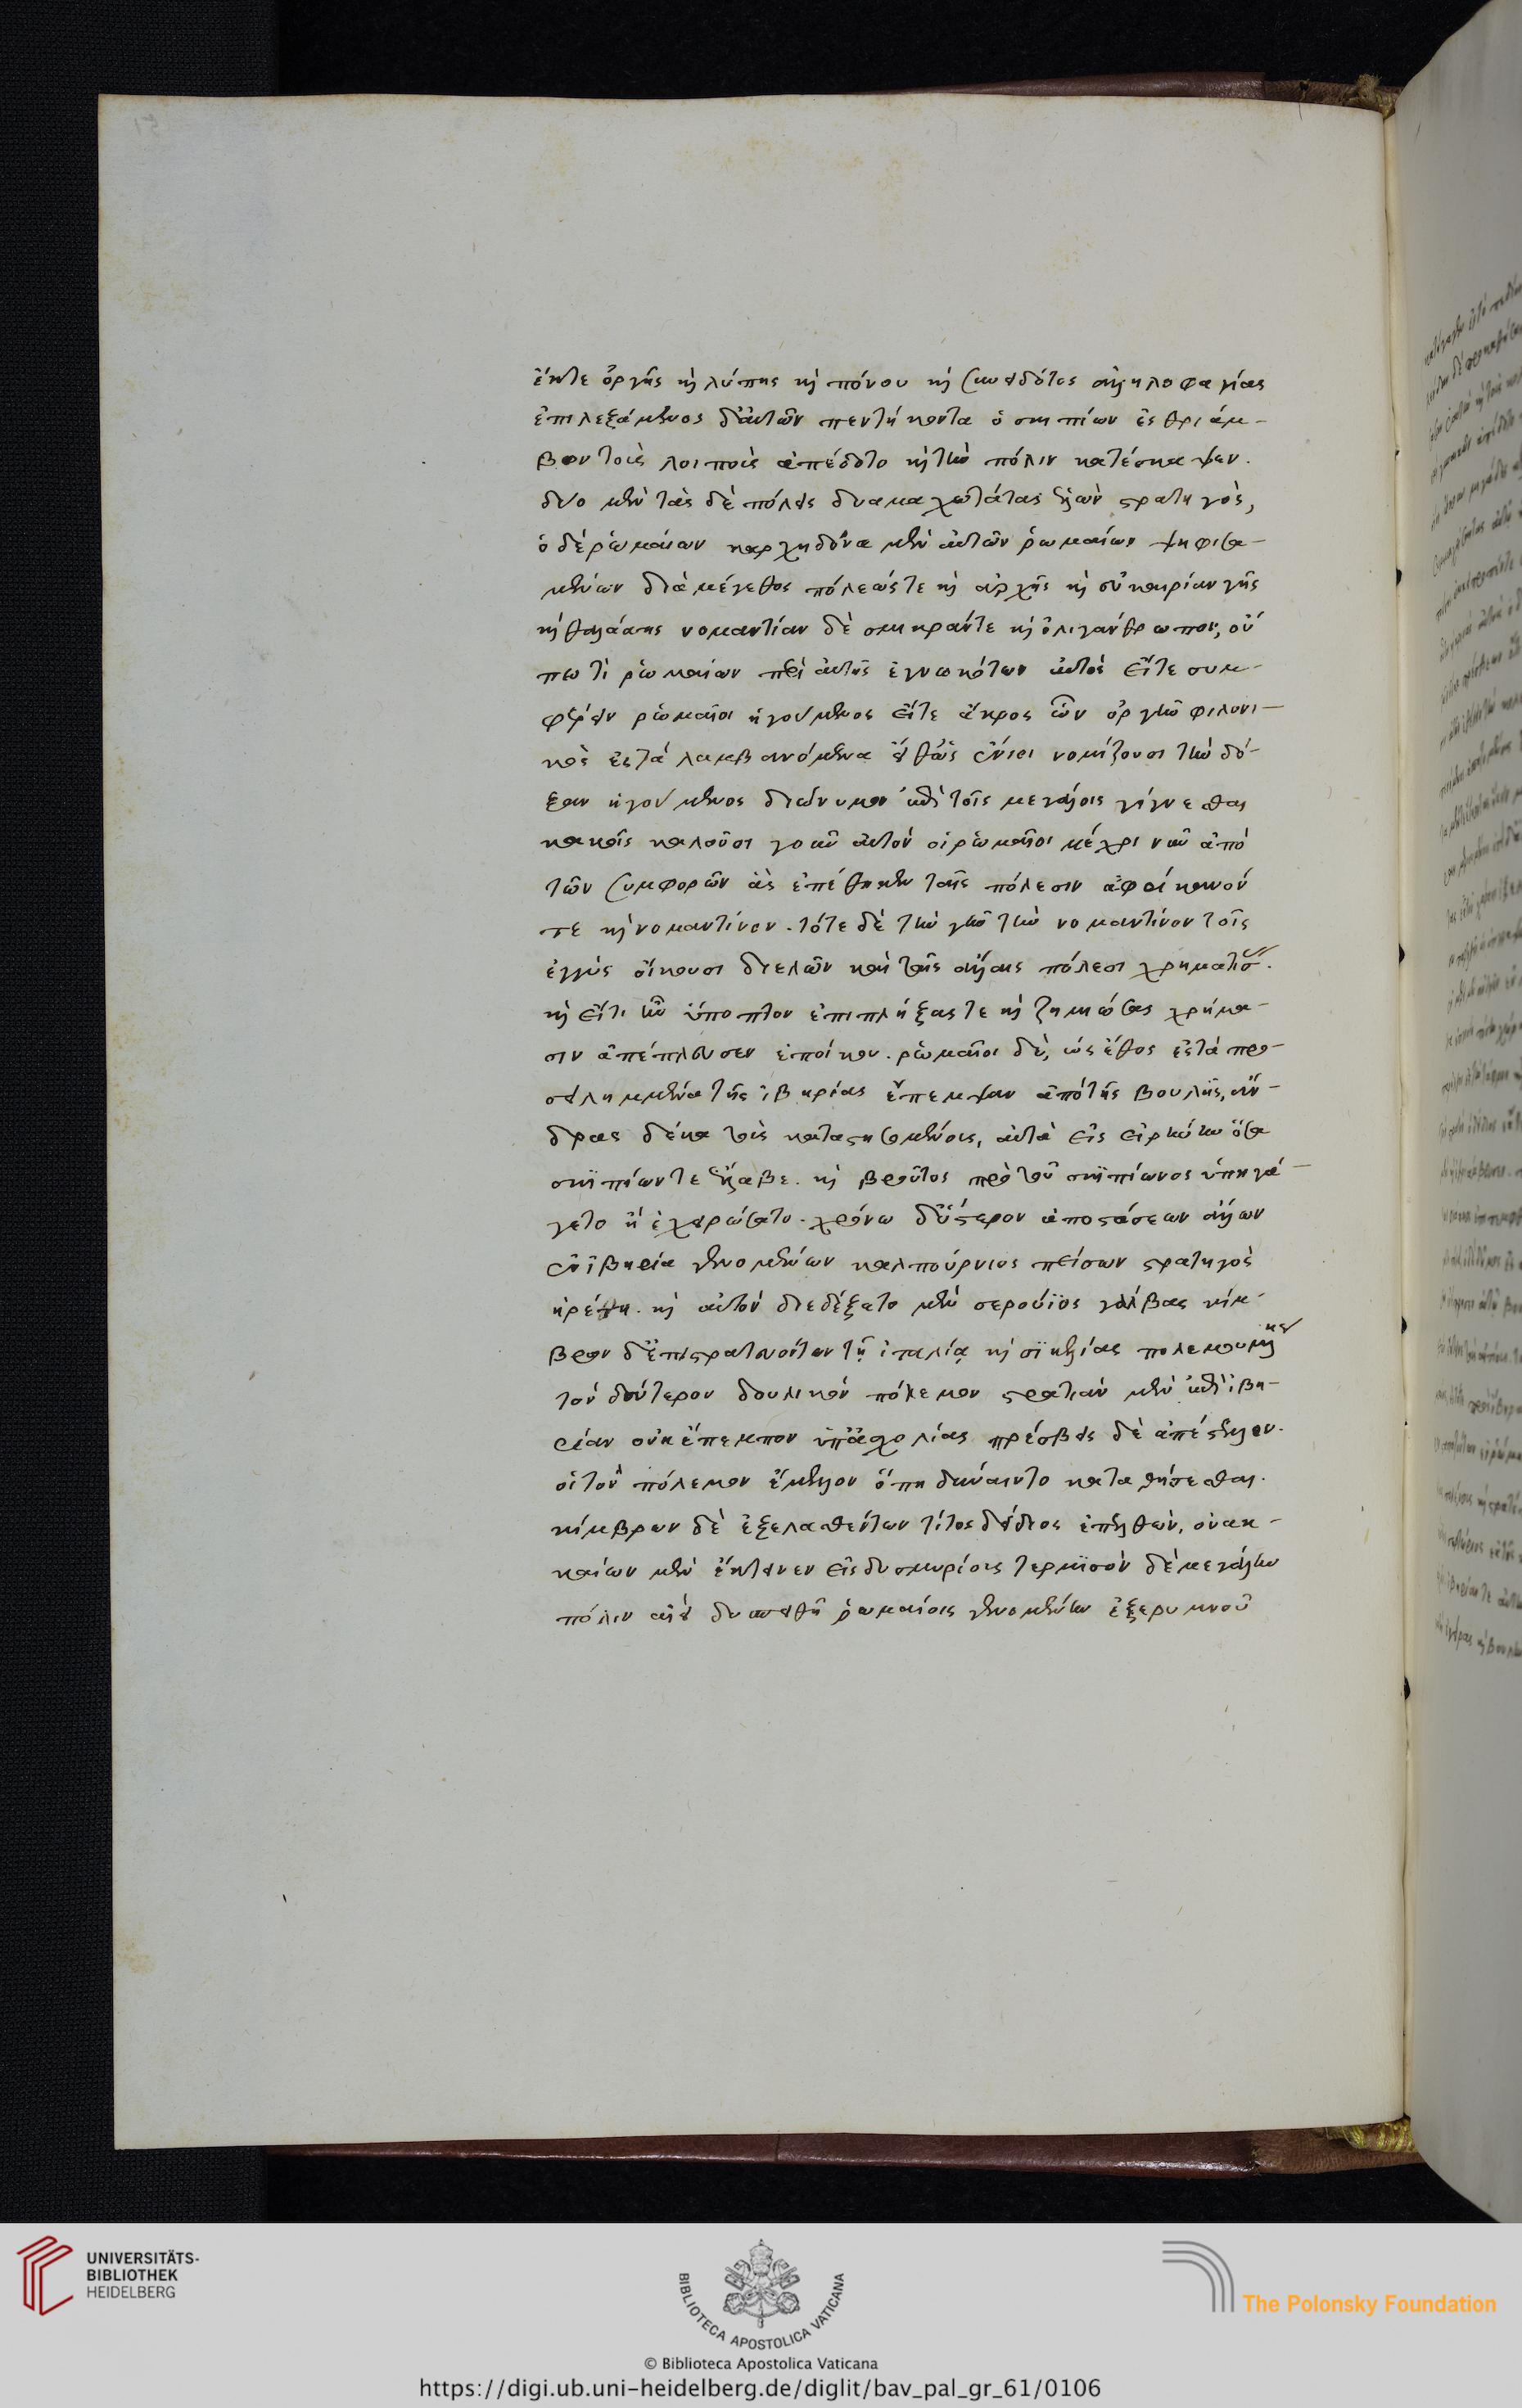 ἔκ τε ὀργῆς καὶ λύπης καὶ πόνου καὶ συνειδότος ἀλληλοφαγίας
ἐπιλεξάμενος δ' αὐτῶν πεντήκοντα ὁ σκιπίων ἐς θρίαμ-
βον τοὺς λοιποὺς ἀπέδοτο καὶ τὴν πόλιν κατέσκαψεν.
δύο μὲν τὰς δὲ πόλεις δυσμαχωτάτας ἑλὼν στρατηγὸς,
ὁ δὲ ῥωμαίων καρχηδόνα μὲν αὐτῶν ῥωμαίων ψηφισα-
μένων διὰ μέγεθος πόλεώς τε καὶ ἀρχῆς καὶ εὐκαιρίαν γῆς
καὶ θαλάσσης νομαντίαν δὲ σμικράν τε καὶ ὀλιγάνθρωπον, οὔ
πω τὶ ῥωμαίων περὶ αὐτῆς ἐγνωκότων αὐτὸς εἴτε συμ-
φέρειν ῥωμαίοι ἡγούμενος εἴτε ἄκρος ὢν ὀργὴν φιλονι-
κὸς ἐς τὰ λαμβανόμενα εἴθ' ὡς ἔνιοι νομίζουσι τὴν δό-
ξαν ἡγούμενος διώνυμον ἐπὶ τοῖς μεγάλοις γίγνεσθαι
κακοῖς καλοῦσι γοῦν αὐτὸν οἱ ῥωμαῖοι μέχρι νῦν ἀπὸ
τῶν συμφορῶν ἃς ἐπέθηκεν ταῖς πόλεσιν ἀφρικανόν
τε καὶ νομαντῖνον. τότε δὲ τὴν γῆν τὴν νομαντίνον τοῖς
ἐγγὺς οἰκοῦσι διελὼν καὶ ταῖς ἄλλαις πόλεσι χρηματισ.
καὶ εἴ τι ἦν ὕποπτον ἐπιπλήξας τε καὶ ζημιώσας χρήμα-
σιν ἀπέπλευσεν ἐποίκου. ῥωμαῖοι δὲ, ὡς ἔθος ἐς τὰ προ-
σειλημμένα τῆς ἰβηρίας ἔπεμψαν ἀπὸ τῆς βουλῆς, ἄν-
δρας δέκα τοὺς καταστησομένους, αὐτὰ εἰς εἰρήνην ὅσα
σκιπίων τε ἔλαβε. καὶ βροῦτος πρὸ τοῦ σκιπίωνος ὑπηγά-
γετο ἢ ἐχειρώσατο. χρόνω δ' ὕστερον ἀποστάσεων ἄλλων
ἐν ἰβηρία γενομένων καλπούρνιος πείσων στρατηγὸς
ἡρέθη. καὶ αὐτὸν διεδέξατο μὲν σερούϊος γάλβας κίμ-
βρων δ' ἐπιστρατευόντων τῇ ἰταλίᾳ καὶ σικελίας πολεμουμένης
τὸν δεύτερον δουλικὸν πόλεμον στρατιὰν μὲν ἐπὶ ἰβη-
ρίαν οὐκ ἔπεμπον ὑπ' ἀσχολίας πρέσβεις δὲ ἀπέστελλον.
οἳ τὸν πόλεμον ἔμελλον ὅπη δύναιντο καταθήσεσθαι.
κίμβρων δὲ ἐξελασθέντων τίτος δείδιος ἐπελθὼν, ἀρακ-
καίων μὲν ἔκτεινεν εἰς δισμυρίους τερμισὸν δὲ μεγάλην
πόλιν αἰεὶ δυσπειθῆ ῥωμαίοις γενομένην ἐξ ἐρυμνοῦ
UNIVERSITÄTS-
BIBLIOTHEK
HEIDELBERG
BIBLIOTECA APOSTOLICA VATICANA
© Biblioteca Apostolica Vaticana
The Polonsky Foundation
https://digi.ub.uni-heidelberg.de/diglit/bav_pal_gr_61/0106